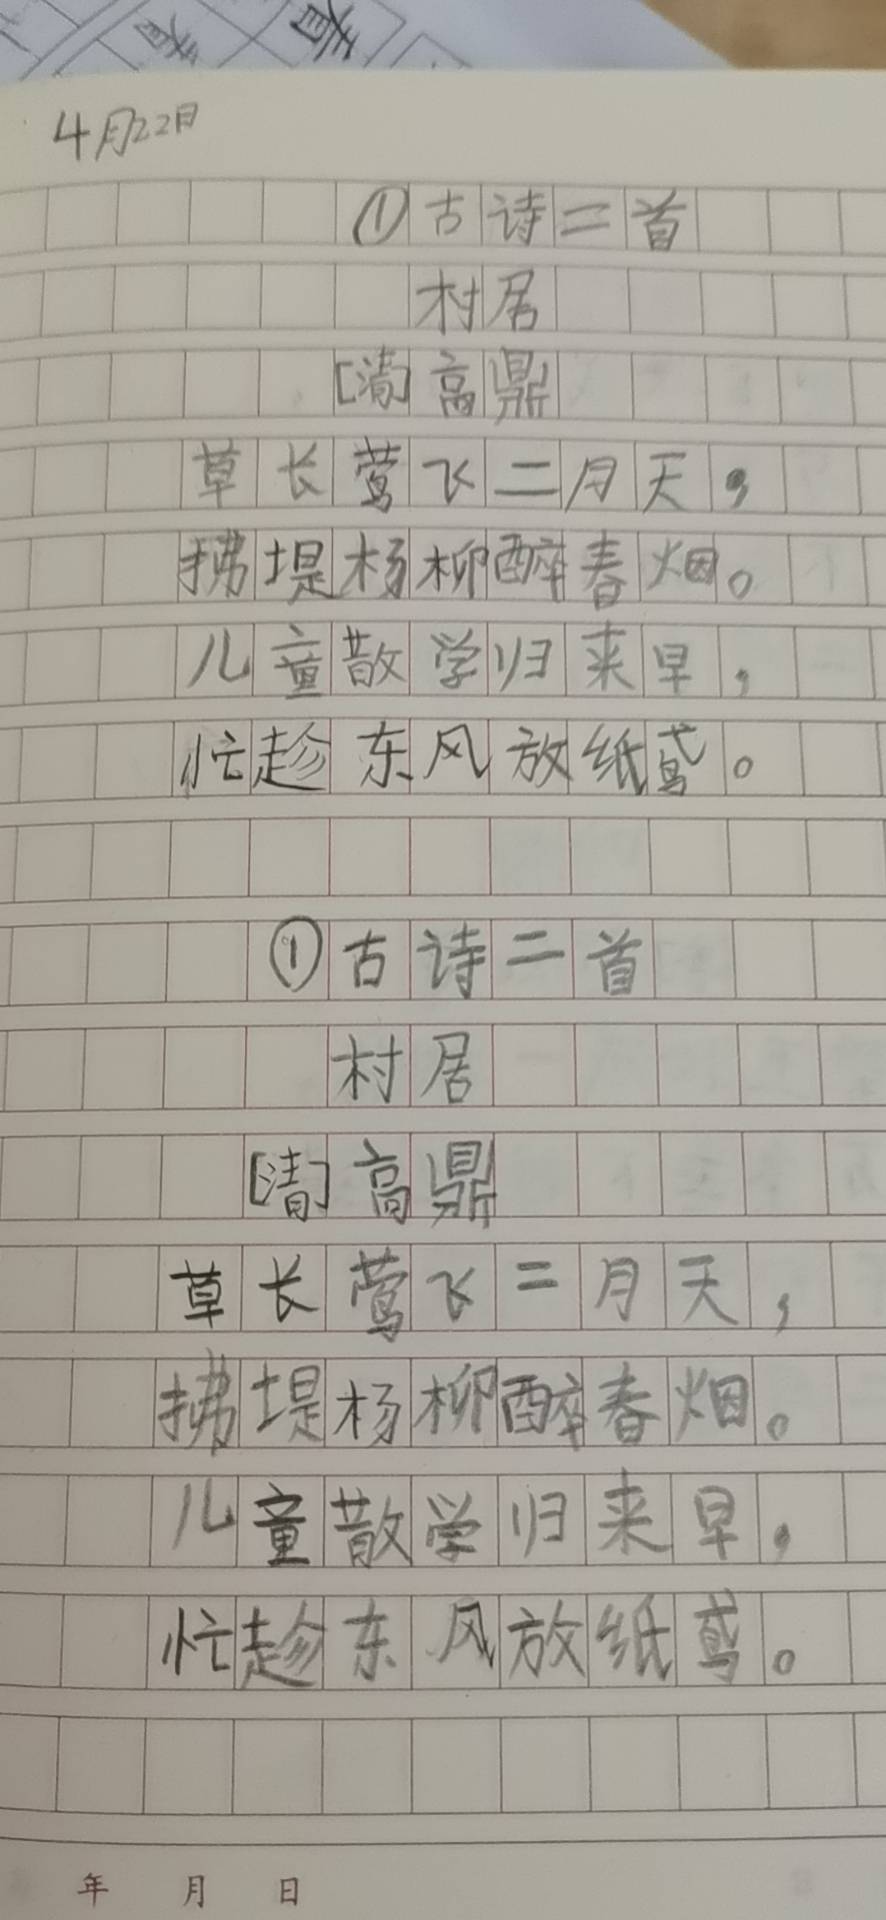 4月22日
①古诗二首
村居
[清]高鼎
草长莺飞二月天，
拂堤杨柳醉春烟。
儿童散学归来早，
忙趁东风放纸鸢。
①古诗二首
村居
[清]高鼎
草长莺飞二月天，
拂堤杨柳醉春烟。
儿童散学归来早，
忙趁东风放纸鸢。
年 月 日